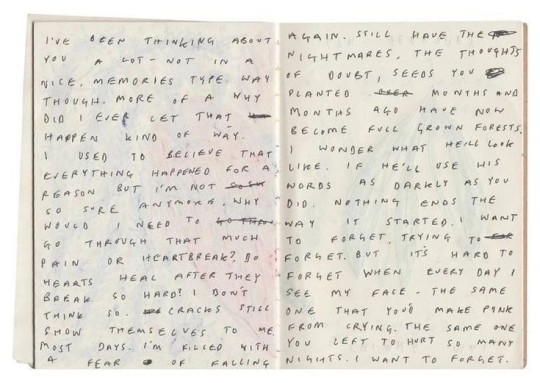 I'VE BEEN THINKING ABOUT
YOU A LOT - NOT IN A
NICE, MEMORIES TYPE WAY
THOUGH. MORE OF A WHY
DID I EVER LET THAT
HAPPEN KIND OF WAY.
I USED TO BELIEVE THAT
EVERYTHING HAPPENED FOR A
REASON BUT I'M NOT SO SU
SO SURE ANYMORE. WHY
WOULD I NEED TO GO THRO
GO THROUGH THAT MUCH
PAIN OR HEARTBREAK? DO
HEARTS HEAL AFTER THEY
BREAK SO HARD? I DON'T
THINK SO. CRACKS STILL
SHOW THEMSELVES TO ME
MOST DAYS. I'M FILLED WITH
A FEAR OF FALLING
AGAIN. STILL HAVE THE
NIGHTMARES, THE THOUGHTS
OF DOUBT, SEEDS YOU
PLANTED OVER MONTHS AND
MONTHS AGO HAVE NOW
BECOME FULL GROWN FORESTS.
I WONDER WHAT HE'LL LOOK
LIKE. IF HE'LL USE HIS
WORDS AS DARKLY AS YOU
DID. NOTHING ENDS THE
WAY IT STARTED. I WANT
TO FORGET, TRYING TO FOR
FORGET. BUT IT'S HARD TO
FORGET WHEN EVERY DAY I
SEE MY FACE - THE SAME
ONE THAT YOU'D MAKE PINK
FROM CRYING. THE SAME ONE
YOU LEFT TO HURT SO MANY
NIGHTS. I WANT TO FORGET.